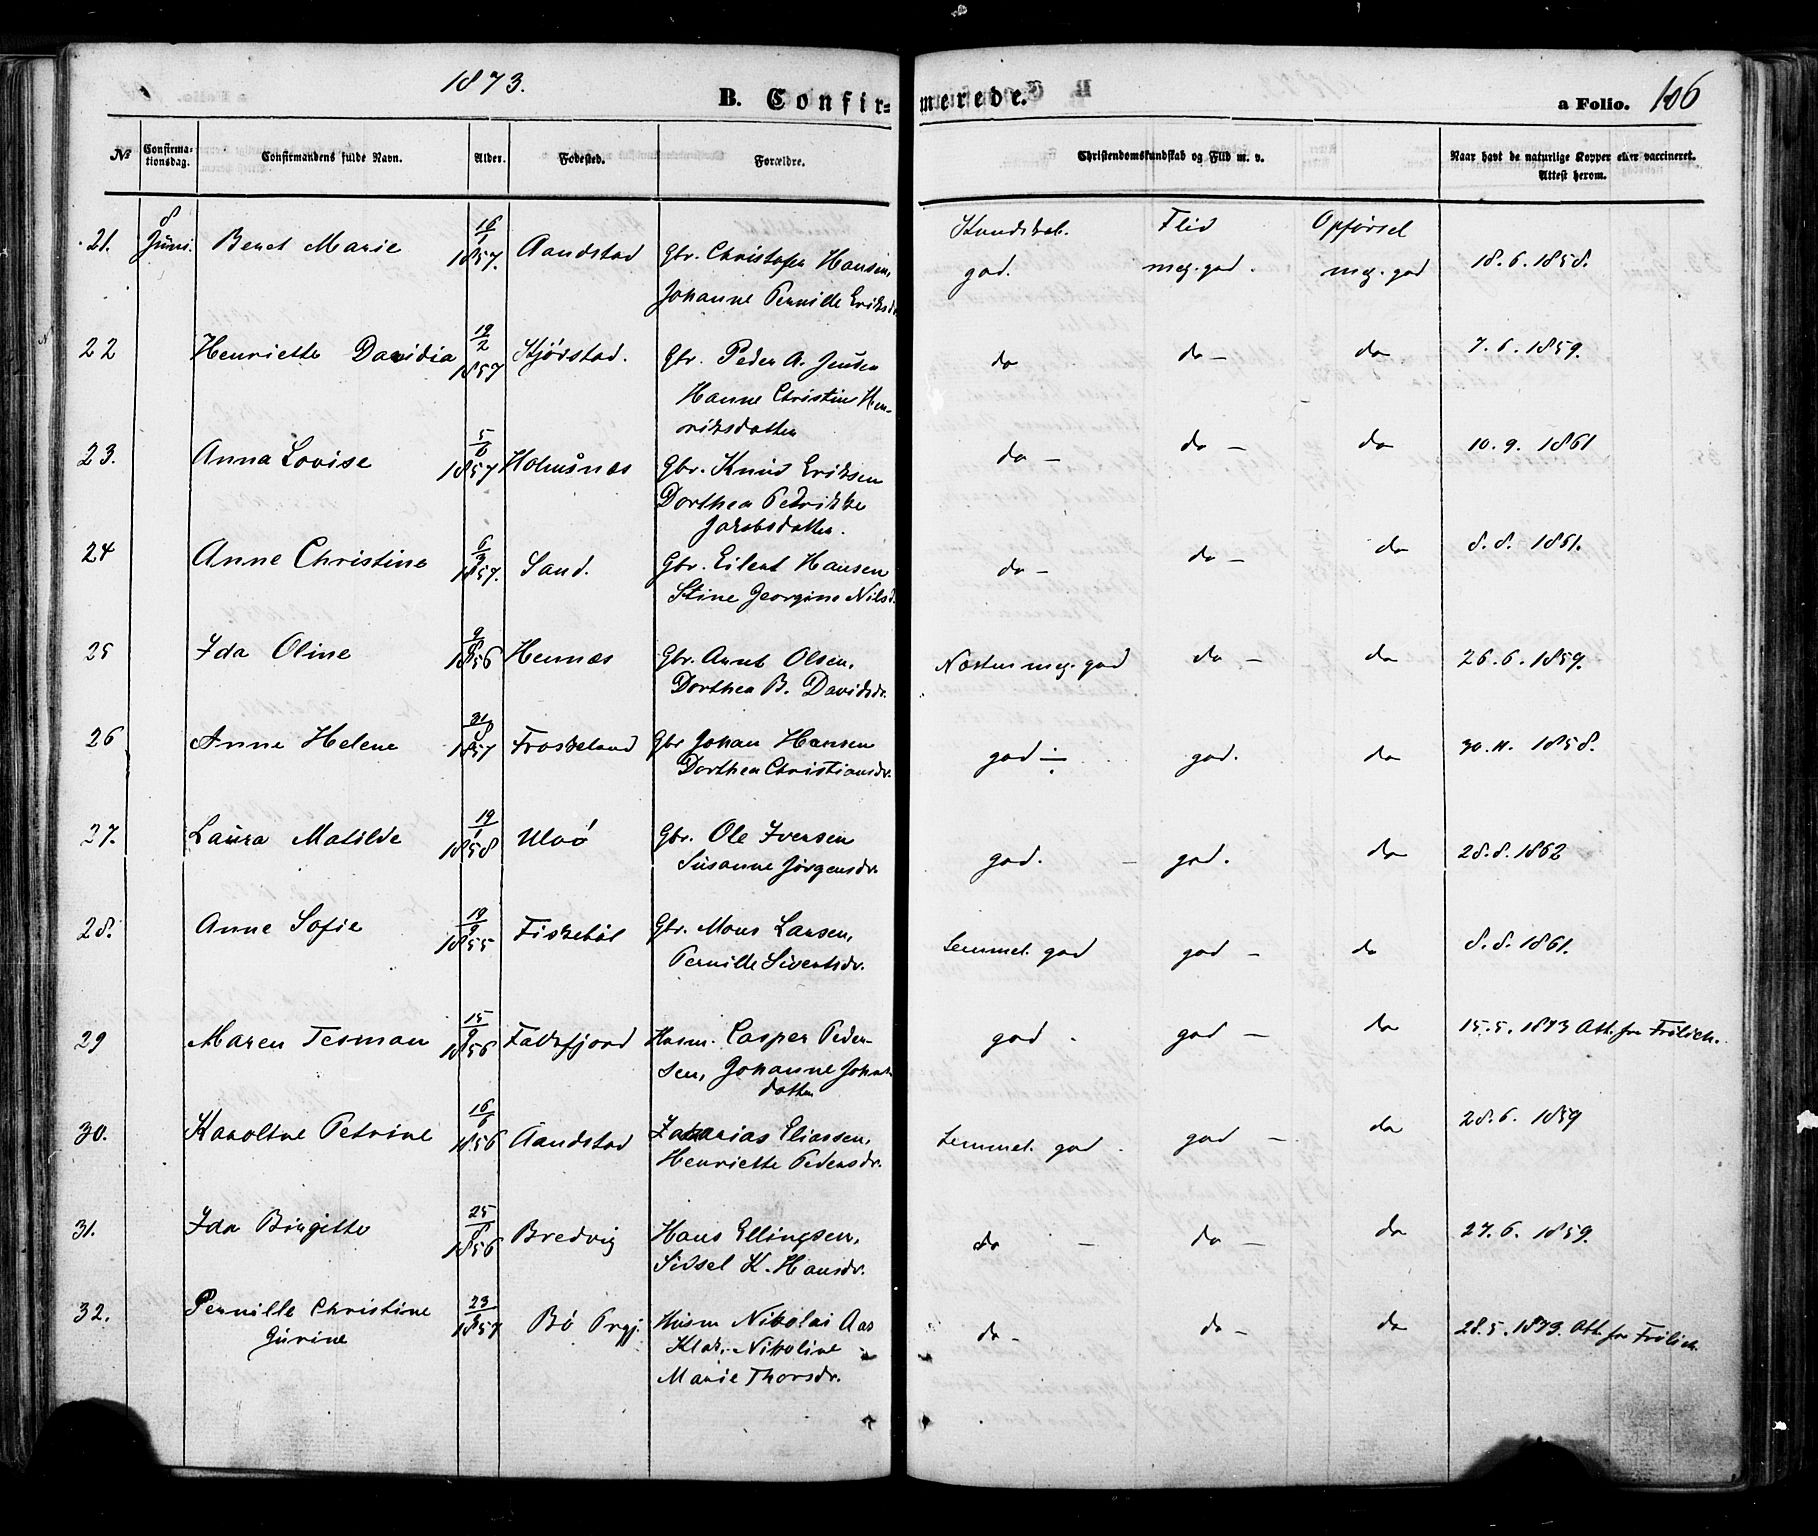 1873.
B. Confirmerede.
a Folio. 106
No Confirmationsdag. Confirmandens fulde Navn. Alder. Fødested. Forældre. Christendomskundskab og Flid m. v. Naar havt de naturlige Kopper eller vaccineret. Attest herom.
21. 8 Juni. Beret Marie 16/1 1857. Aandstad Gbr. Christofer Hansen, Johanne Pernille Eriksd. Kundskab. god. Flid meg. god. Opførsel meg. god 18.6.1858.
22 Henriette Davidia 19/2 1857 Stjørstad. Gbr. Peder A. Jensen Hanne Christine Henriksdatter do do – do 7.6.1859.
23. Anna Lovise 5/6 1857 Holmsnæs Gbr. Knud Eriksen Dorthea Petrikke Jakobsdatter. do – do – do 10.9.1861
24 Anne Christine 6/3 1857. Sand. Gbr. Eilert Hansen Stine Georgine Nilsd. do – do – do 8.8.1861.
25 Ida Oline 9/8 1856 Hennæs Gbr. Arnt Olsen, Dorthea B. Davidsdr. Næsten meg. god do – do 26.6.1859.
26 Anne Helene 1857 Froskeland Gbr Johan Hansen Dorthea Christiansdr. god god. do 30.11.1858.
27. Laura Matilde 19/1 1858 Ulvø Gbr. Ole Iversen Susanne Jørgensdr. god. – god. do 28.8.1862
28. Anne Sofie 19/9 1855 Fiskebøl Gbr. Mons Larsen, Pernille Sivertsdr. Temmel. god god – do 8.8.1861.
29 Maren Tesman 15/9 1856 Falkfjord Husm. Casper Pedersen, Johanne Johnsdatter god. god – do 15.5.1873 Att. fra Frölich.
30. Karoline Petrine 16/6 1856 Aandstad Zakarias Eliassen, Henriette Pedersdr. Temmel. god. god – do 28.6.1859
31. Ida Birgitte 25/8 1856 Bredvig Hans Ellingsen, Sidsel K. Hansdr. do – do – do 27.6.1859.
32. Pernille Christine Gurine 23/3 1857 Bø Prgj. Husm Nikolai Aas Klak, Nikoline Marie Thorsdr. do – do – do 28.5.1873. Att. fra Frölich.